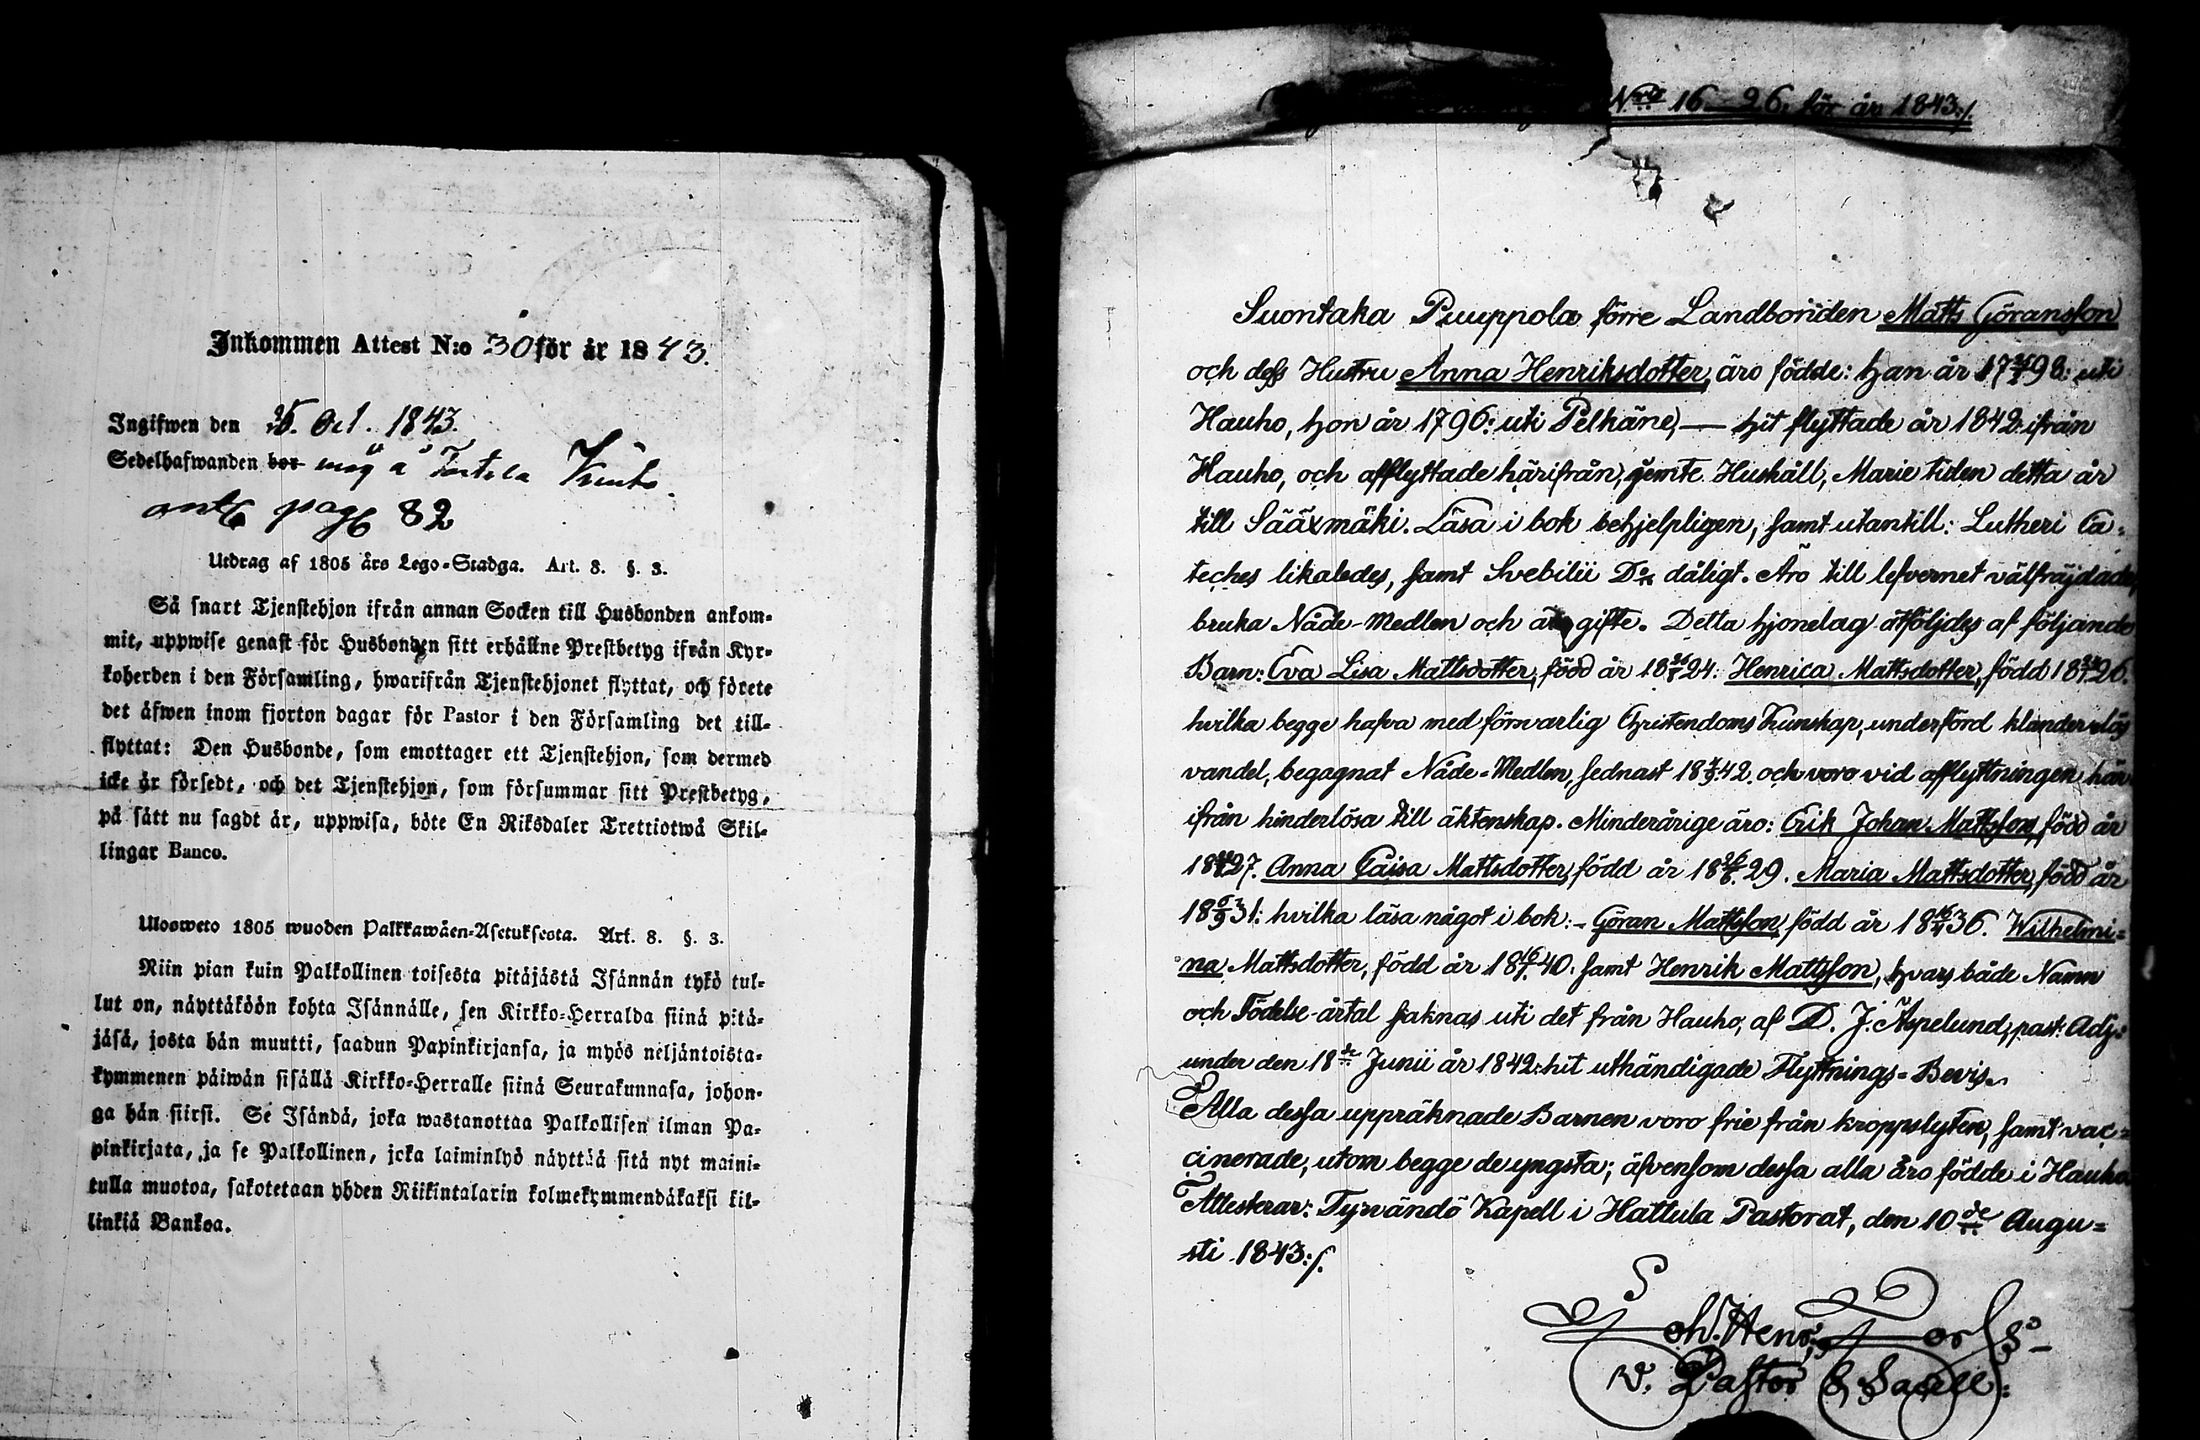 Inkommen Attest N:o 30 för år 1843.
Ingifwen den 25. Oct. 1843.
Sedelhafwanden bor
antc page 82
Utdrag af 1805 års Lego-Stadga. Art. 8. §. 3.
Så snart Tjenstehjon ifrån annan Socken till Husbonden ankom-
mit, uppwise genast för Husbonden sitt erhållne Prestbetyg ifrån Kyr-
koherden i den Församling, hwarifrån Tjenstehjonet flyttat, och förete
det äfwen inom fjorton dagar för Pastor i den Församling det till-
flyttat: Den Husbonde, som emottager ett Tjenstehjon, som dermed
icke är försedt, och det Tjenstehjon, som försummar sitt Prestbetyg,
på sätt nu sagdt är, uppwisa, böte En Riksdaler Trettiotwå Skil-
lingar Banco.
Ulosweto 1805 wuoden Palkkawäen-Asetuksesta. Art. 8. §. 3.
Niin pian kuin Palkollinen toisesta pitäjästä Isännän tykö tul-
lut on, näyttäköön kohta Isännälle, sen Kirkko-Herralda siinä pitä-
jäsä, josta hän muutti, saadun Papinkirjansa, ja myös neljäntoista-
kymmenen päiwän sisällä Kirkko-Herralle siinä Seurakunnasa, johon-
ga hän siirsi. Se Isändä, joka wastanottaa Palkollisen ilman Pa-
pinkirjata, ja se Palkollinen, joka laiminlyö näyttää sitä nyt maini-
tulla muotoa, sakotetaan yhden Riikintalarin kolmekymmendäkaksi kil-
linkiä Bankoa.
Nris 16-26. för år 1843:/.
Suontaka Puuppola förre Landboriden Matts Göransson
och dess Hustru Anna Henriksdotter, äro födde: han år 1798: uti
Hauho, hon år 1796: uti Pelkäne, — hit flyttade år 1842: ifrån
Hauho, och afflyttade härifrån, jemte Hushåll, Marie tiden detta år
till Sääxmäki. Läsa i bok behjelpligen, samt utantill: Lutheri Ca-
teches likaledes, samt Svebilii Do dåligt. Äro till lefvernet välfräjdade,
bruka Nåde-Medlen och äro gifte. Detta hjonelag åtföljdes af följande
Barn: Eva Lisa Mattsdotter, född år 1824: Henrica Mattsdotter, född 1826.
hvilka begge hafva med försvarlig Christendoms Kunskap, underförd klanderslös
vandel, begagnat Nåde-Medlen, sednast 18 42. och voro vid afflyttningen här
ifrån hinderlösa till äktenskap. Minderårige äro: Erik Johan Mattsson, född år
1827. Anna Caisa Mattsdotter, född år 18 29. Maria Mattsdotter, född år
18 6/9 31: hvilka läsa något i bok: - Göran Mattsson, född år 18 36. Wilhelmi-
na Mattsdotter, född år 18 40. samt Henrik Mattsson, hvars både Namn
och Födelse-årtal saknas uti det från Hauho, af D. J. Aspelund, past: Adj:
under den 18de Junii år 1842: hit uthändigade Flyttnings-Bevis.
Alla dessa uppräknade Barnen voro frie från kroppslyten, samt vac-
cinerade, utom begge de yngsta; äfvensom dessa alla äro födde i Hauho.
Attesterar: Tyrvändö Kapell i Hattula Pastorat, den 10de Augu-
sti 1843:/.
Joh. Henr.
v. Pastor & Sacell: